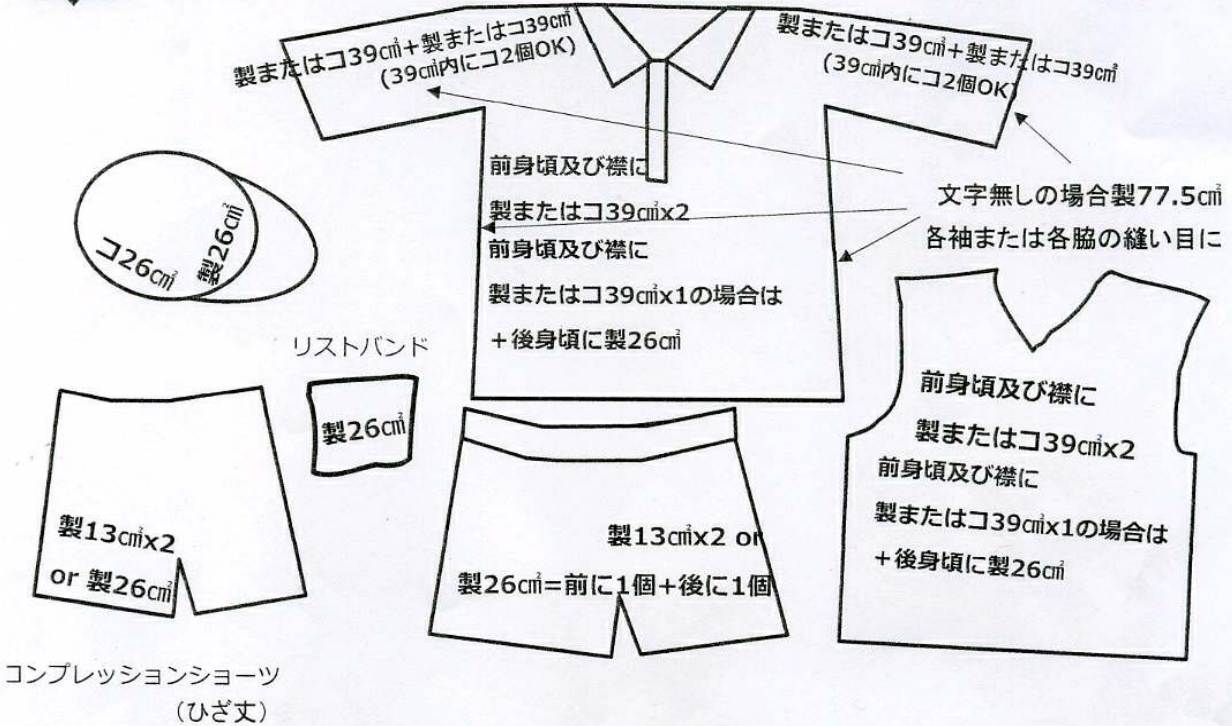 製またはコ39㎠+製またはコ39㎠
(39㎠内にコ2個OK)
製またはコ39㎠+製またはコ39㎠
(39㎠内にコ2個OK)
前身頃及び襟に
製またはコ39㎠x2
前身頃及び襟に
製またはコ39㎠x1の場合は
+後身頃に製26㎠
文字無しの場合製77.5㎠
各袖または各脇の縫い目に
コ26㎠
製26㎠
リストバンド
製26㎠
製13㎠x2
or 製26㎠
コンプレッションショーツ
(ひざ丈)
製13㎠x2 or
製26㎠=前に1個+後に1個
前身頃及び襟に
製またはコ39㎠x2
前身頃及び襟に
製またはコ39㎠x1の場合は
+後身頃に製26㎠